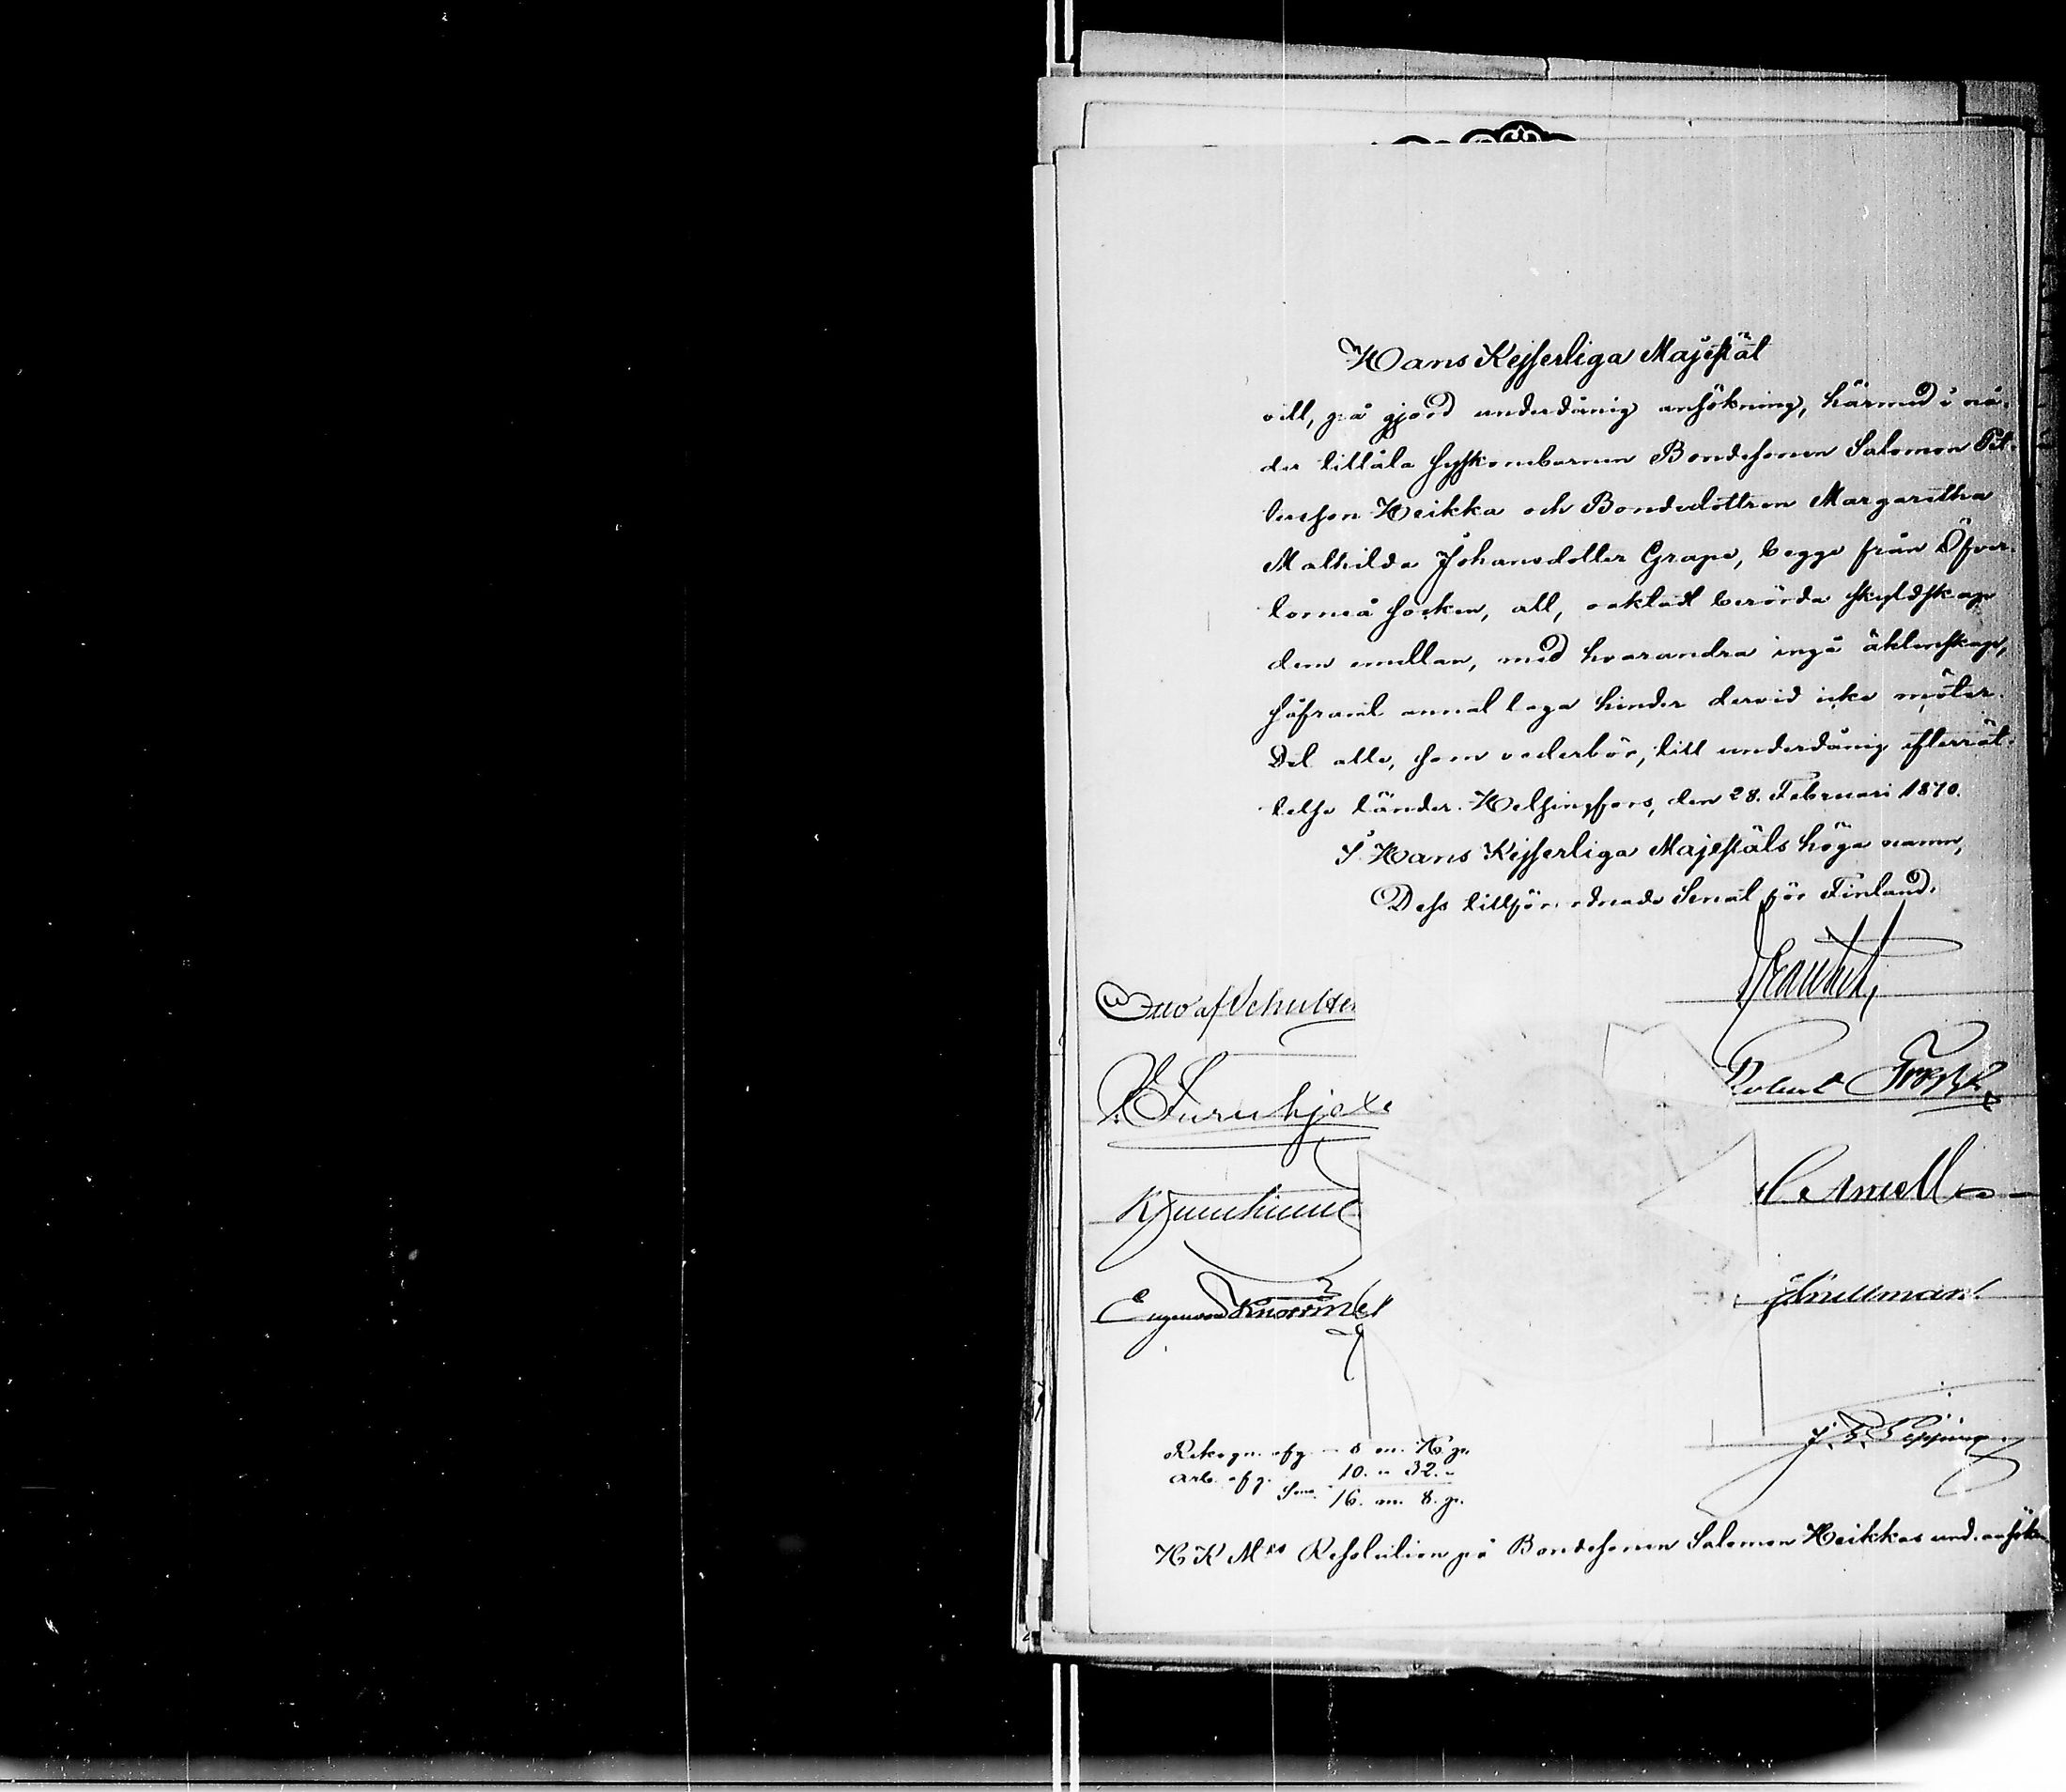 Hans Kejserliga Majestät
vill, på gjord underdånig ansökning, härmed i nå-
der tillåta syskonebarnen Bondesonen Salomon Pet-
tersson Heikka och Bondedottren Margaretha
Mathilda Johansdotter Grape, begge från Öfver-
torneå socken, att, oaktadt berörda skyldskap
dem emellan, med hvarandra ingå äktenskap,
såframt annat laga hinder dervid icke möter.
Det alle, som vederbör, till underdånig efterrät-
telse länder. Helsingfors, den 28. Februari 1870.
I Hans Kejserliga Majestäts höga namn,
Dess tillförordnade Senat för Finland.
af Schultén
Robert
V Furuhjelm
C Amell
Eugène von Knorring
J V Snellman
Rekogn. afg. m. 76 p.
Arb. afg. 10. " 32. "
Sma 16. m. 8. p.
H K M:ts Resolution på Bondesonen Salomon Heikkas und. ansökn